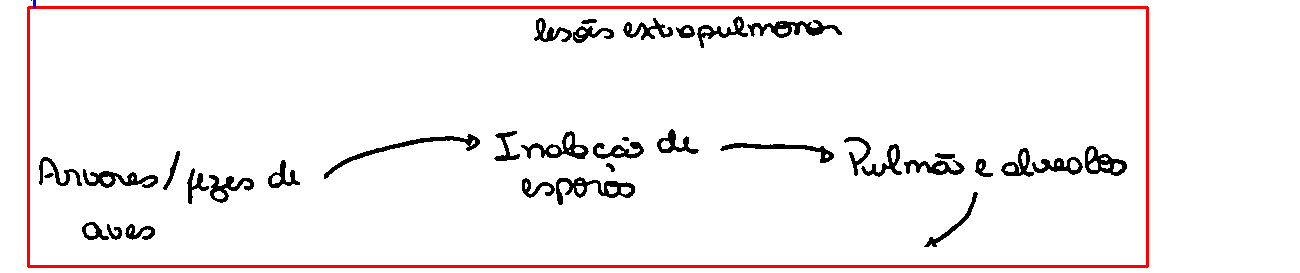 lesões extrapulmonar
Arvores/fezes de
aves
Inalação de
esporos
Pulmão e alveolos